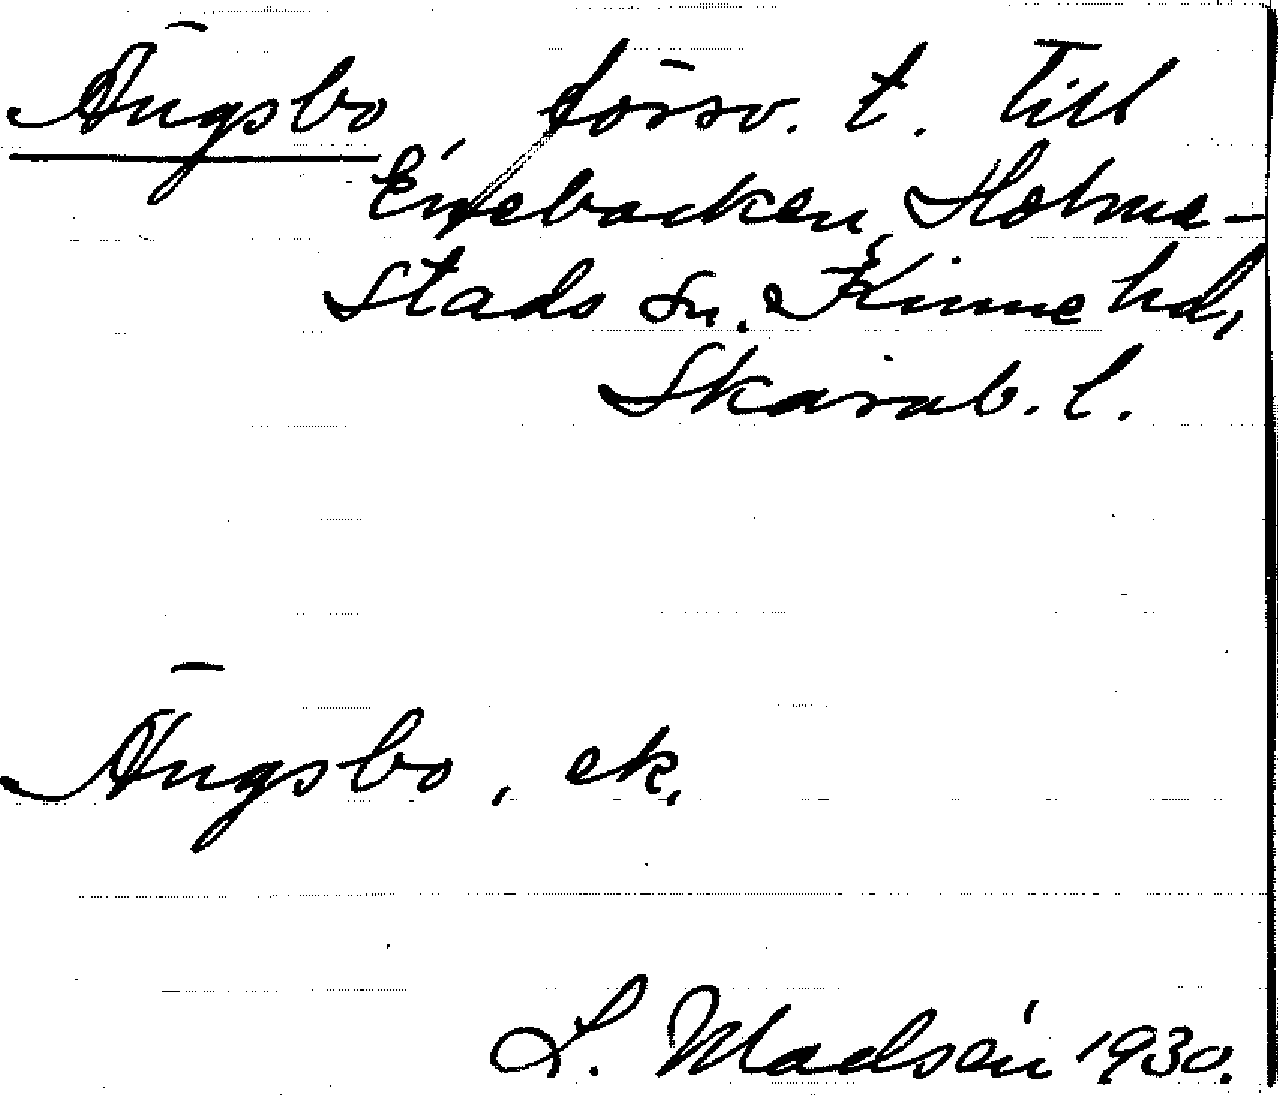 Ängsbo, försv. t. till
Enebacken, Holme-
stads sn. Kinne hd,
Skarab. l.
Ängsbo, ek.
L. Madsén 1930.